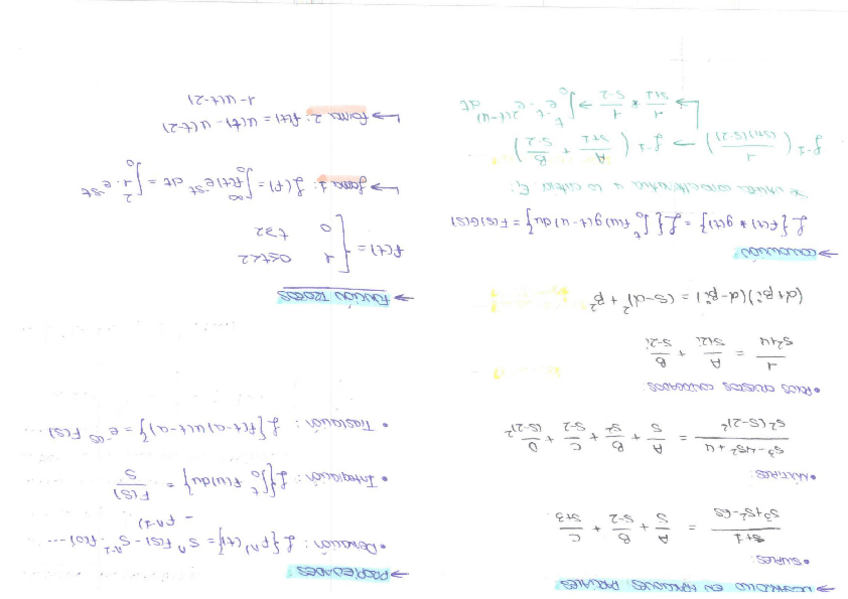 → DESARROLLO EN FRACCIONES PARCIALES
• SIMPLES:
s+1 / s³+s²-6s = A/s + B/s-2 + C/s+3
• MÚLTIPLES:
s³-4s²+4 / s²(s-2)² = A/s + B/s² + C/s-2 + D/(s-2)²
• POLOS COMPLEJOS CONJUGADOS
1 / s²+4 = A/s+2i + B/s-2i
(α+βi)(α-βi) = (s-α)²+β²
→ CONVOLUCIÓN
ℒ{f(t)*g(t)} = ℒ{∫₀ᵗ f(u)g(t-u)du} = F(s)G(s)
ℒ⁻¹(1/(s+1)(s-2)) → ℒ⁻¹(A/s+1 + B/s-2)
↳ 1/s+1 * 1/s-2 → ∫₀ᵗ e⁻ᵗ·e²⁽ᵗ⁻ᵘ⁾ dt
→ PROPIEDADES
• Derivación: ℒ{fⁿ⁾(t)} = sⁿF(s)-sⁿ⁻¹·f(0)-...
- fⁿ⁻¹)
• Integración: ℒ{∫₀ᵗ f(u)du} = F(s)/s
• Traslación: ℒ{f(t-a)u(t-a)} = e⁻ᵃˢ F(s)
→ FUNCIÓN TROZOS
f(t) = { 1 0≤t<2
0 t≥2
↳ forma 1: ℒ(f) = ∫₀^∞ f(t)e⁻ˢᵗ dt = ∫₀² 1·e⁻ˢᵗ
↳ forma 2: f(t) = u(t) - u(t-2)
1-u(t-2)